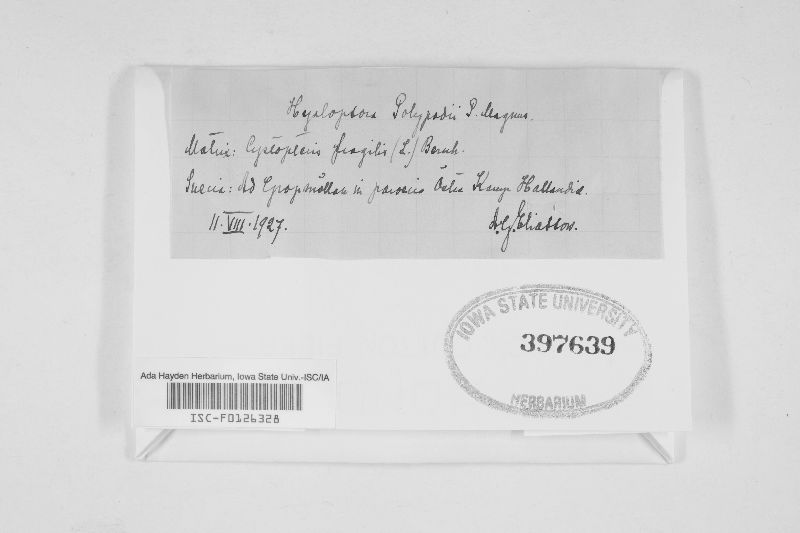 Hyalopsora Polypodii P. Magnus.
Matrix: Cystopteris fragilis (L.) Bernh.
Suecia: Ad in paroecia Östra Karup Hallandiæ.
11. VIII. 1927.
A. G. Eliasson.
IOWA STATE UNIVERSITY
397639
HERBARIUM
Ada Hayden Herbarium, Iowa State Univ.-ISC/IA
ISC-F0126328